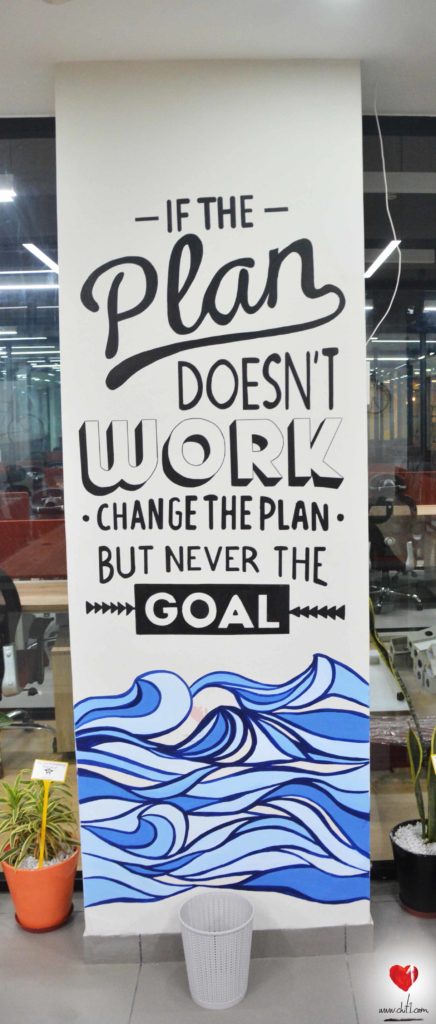 – IF THE –
Plan
DOESN'T
WORK
· CHANGE THE PLAN ·
BUT NEVER THE
GOAL